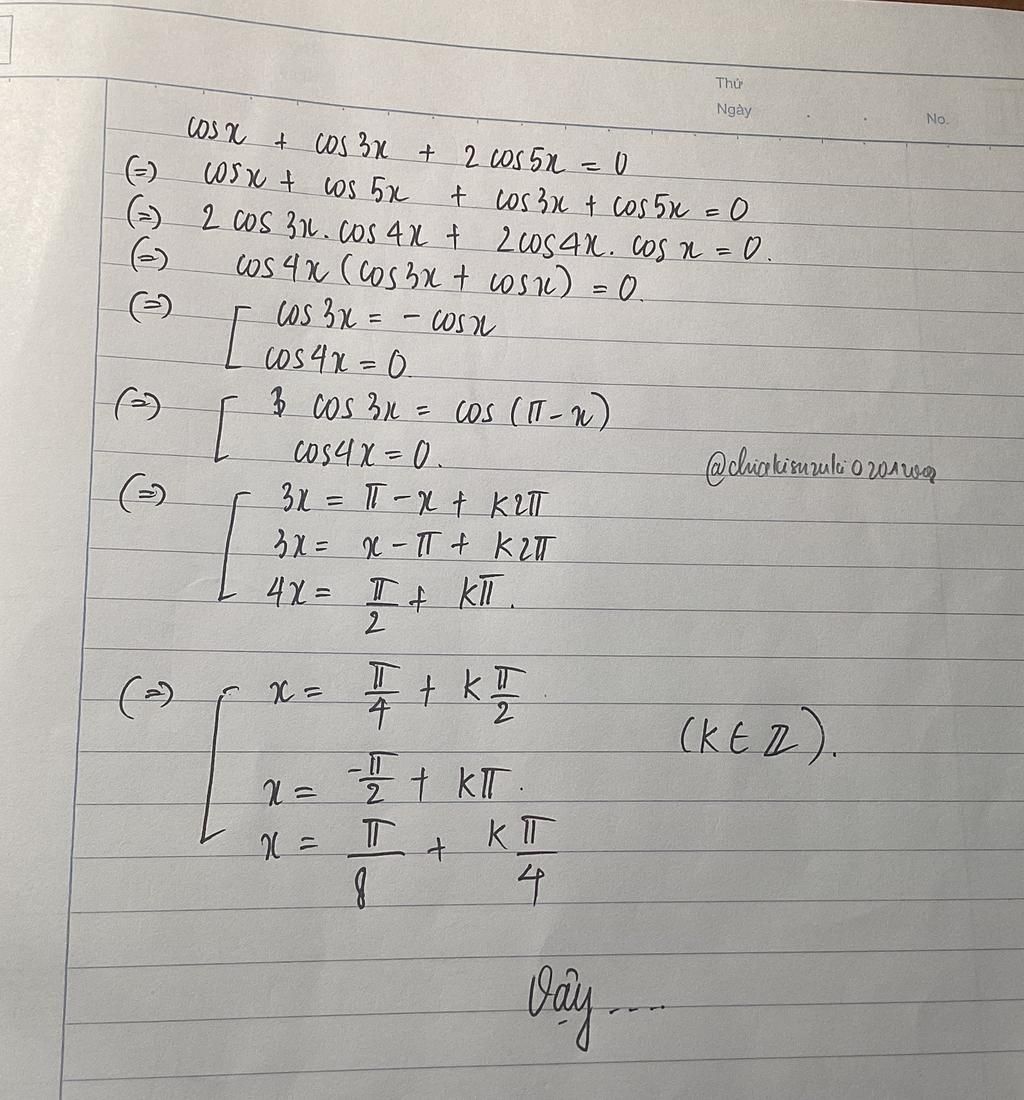 Thứ
Ngày . . No.
cosx + cos3x + 2cos5x = 0
(=) cosx + cos5x + cos3x + cos5x = 0
(=) 2cos3x.cos4x + 2cos4x.cosx = 0.
(=) cos4x(cos3x + cosx) = 0.
(=) [ cos3x = -cosx
cos4x = 0.
(=) [ cos3x = cos(π-x)
cos4x = 0.
(=) [ 3x = π-x + k2π
3x = x-π + k2π
4x = π/2 + kπ.
(=) [ x = π/4 + kπ/2
(k∈ℤ).
x = -π/2 + kπ.
x = π/8 + kπ/4
Vậy ....